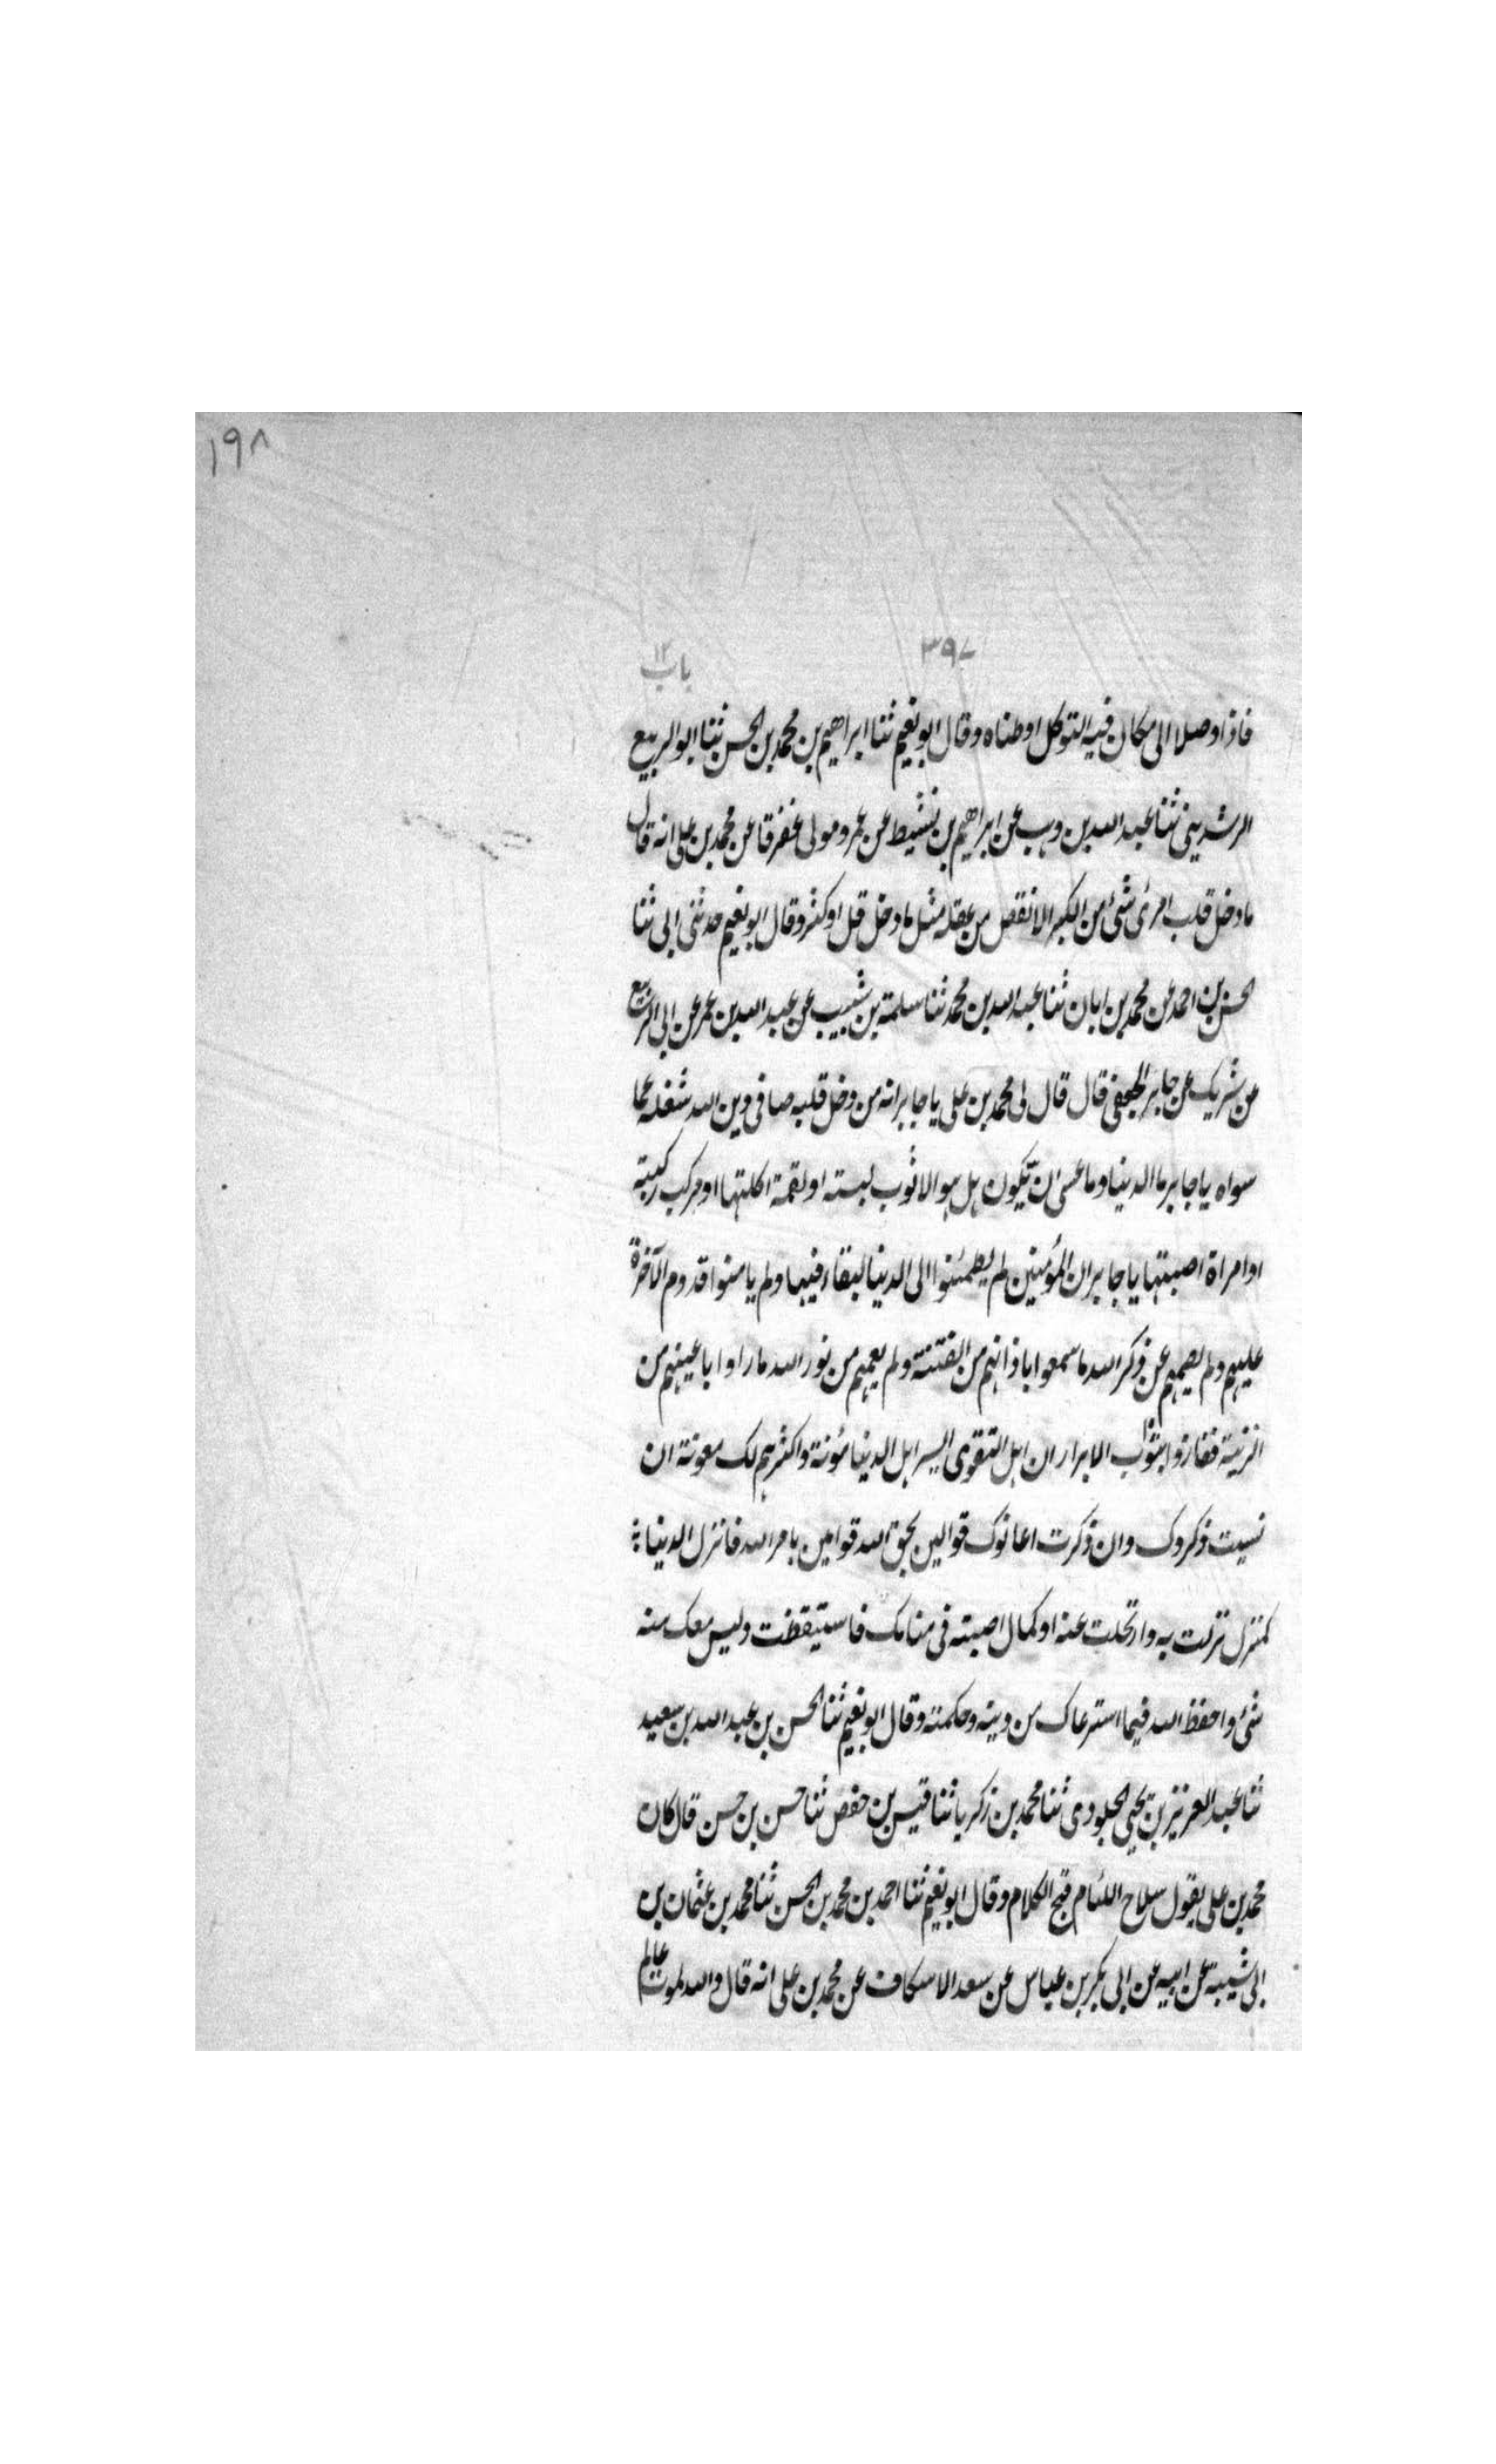 ١٩٨
٣٩٧
باب ١٢
فاذا وصلا الى مكان فيه التوكل اوطناه وقال ابو نعيم ثنا ابراهيم بن محمد بن الحسن ثنا ابو الربيع
الرشديني ثنا عبد الله بن وهب عن ابراهيم بن نشيط عن عمرو مولى غفرة عن محمد بن على انه قال
ما دخل قلب امرئ شئ من الكبر الا نقص من عقله مثل ما دخل قل او كثر وقال ابو نعيم حدثنى ابى ثنا
الحسن بن احمد عن محمد بن ابان ثنا عبد الله بن محمد ثنا سلمة بن شبيب عن عبد الله بن عمر عن ابى الربيع
عن شريك عن جابر الجعفى قال قال لى محمد بن على يا جابر انه من دخل قلبه صافى دين الله شغله عما
سواه يا جابر ما الدنيا وما عسى ان تكون هل هو الا ثوب لبسته او لقمة اكلتها او مركب ركبته
او امراة اصبتها يا جابر ان المؤمنين لم يطمئنوا الى الدنيا لبقاء فيها ولم يامنوا قدوم الآخرة
عليهم ولم يصمهم عن ذكر الله ما سمعوا باذانهم من الفتنة ولم يعمهم من نور الله ما راوا باعينهم من
الزينة ففازوا بثواب الابرار ان اهل التقوى ايسر اهل الدنيا مؤنة واكثرهم لك معونة ان
نسيت ذكروك وان ذكرت اعانوك قوالين بحق الله قوامين بامر الله فانزل الدنيا
كمنزل نزلت به وارتحلت عنه او كمال اصبته فى منامك فاستيقظت وليس معك منه
شئ واحفظ الله فيما استرعاك من دينه وحكمته وقال ابو نعيم ثنا الحسن بن عبد الله بن سعيد
ثنا عبد العزيز بن يحيى الجلودى ثنا محمد بن زكريا ثنا قيس بن حفص ثنا حسن بن حسن قال كان
محمد بن على يقول سلاح اللئام قبح الكلام وقال ابو نعيم ثنا احمد بن محمد بن الحسن ثنا محمد بن عثمان بن
ابى شيبة عن ابيه عن ابى بكر بن عياس عن سعد الاسكاف عن محمد بن على انه قال والله لموت عالم